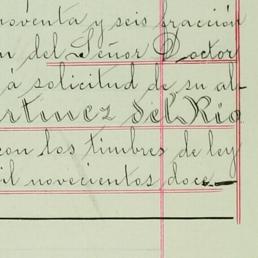 noventa y seis fracción
n del Señor Doctor
á solicitud de su al-
artinez del Rio
con los timbres de ley
il novecientos doce.—